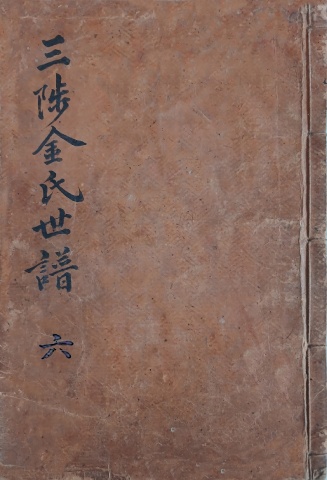 三陟金氏世譜 六